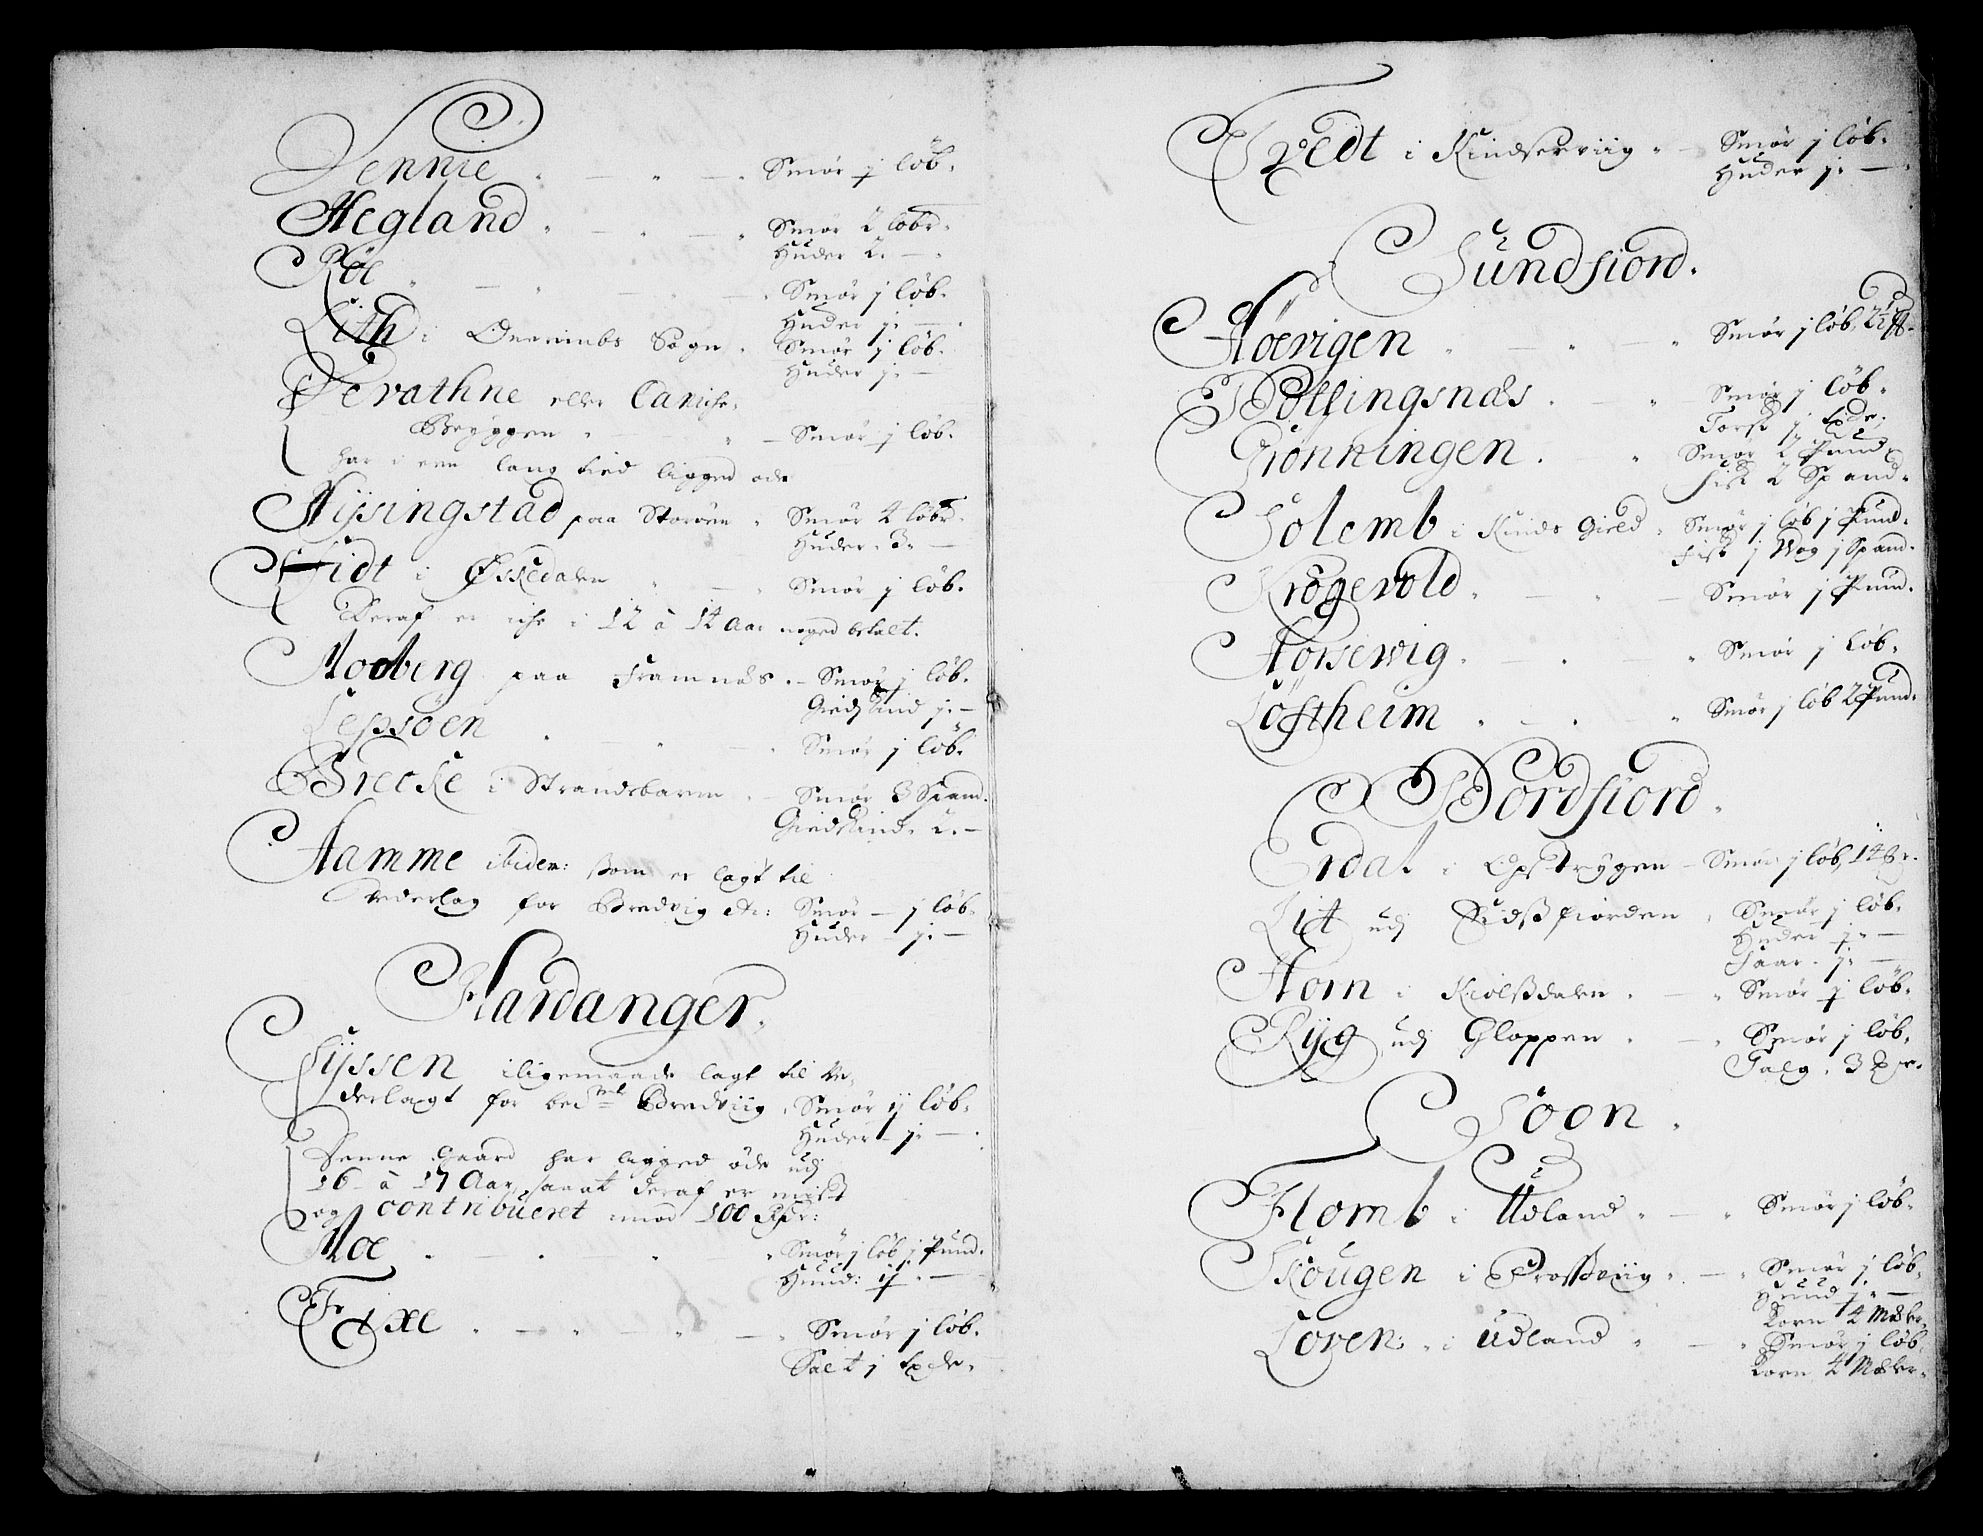 Tennie " — " — " Smør j løb.
Hegland " — " — " Smør 2 løbr.
Huder 2. —
Røe " — " — " — " Smør j løb.
Huder j. —
Lith i Qvernnbs Sogn " Smør j løb.
Huder j. —
Terathne eller Caniche,
Bryggen " — " — Smør j løb.
har i een lang tied ligged øde
Nysingstad paa Storøen " Smør 4 løbr.
Huder. 3. —
Eidt i Øskedalen " — " Smør j løb.
Deraf er iche i 12 à 14 Aar noged betalt.
Moberg paa Framnæs . — Smør j løb.
Giedskind j. —
Lepsøen " — " — " Smør j løb.
Brecke i Strandebarm " — Smør 3 Spand.
Giedskind. 2. —
Hamme ibidem: som er lagt til
Vederlag for Bredvig etc: Smør — j løb.
Huder — j. —
Hardanger.
Syssen iligemaade lagt til Ve,
derlagt for bedte Bredviig, Smør ij løb.
Huder — j. —
Denne Gaard har ligged øde udj
16 à 17 Aar, saa at deraf er mist
og contribueret imod 100 Rdr:
Moe " — " — " Smør j løb j Pund.
Hund: ij. —
Fixe " — " — " — " Smør j løb.
Salt j
Tvedt i Kindserviig " — Smør j løb.
Huder j. —
Sundfiord.
Høevigen " — " — " Smør j løb 2½ ℔.
Bolsingsnæs . — " Smør j løb.
Torsk j
Grønningen . — " Smør 2 Pund,
Fisk 2 Spand.
Solemb i Kinds Gield " Smør j løb j Pund.
Fisk j Wog j Spand.
Krogevold. — " — Smør j Pund.
Horsewig. — " — " Smør j løb.
Løftheim " — " — " Smør j løb 2 Pund.
Nordfiord.
Erdal i Opstrygen — Smør j løb, 14
Lit udj Eidsfiorden " Smør j løb.
Huder j. —
Faar. j. —
Horn i Kiølsdalen . — " Smør j løb.
Ryg udj Gloppen . — " Smør j løb.
Talg. 3
Sogn.
Flomb i Udland " — " Smør j løb.
Skougen i Frosseviig " — " Smør j løb.
Hund j. —
Korn 4 Mæler.
Loven: i Udland " — " Smør j løb.
Korn 4 Mæler.